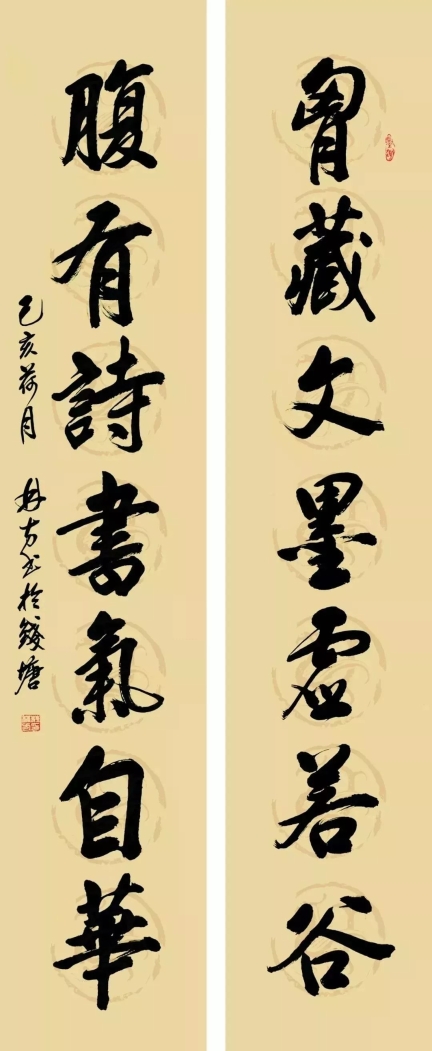 胷藏文墨虚若谷
腹有詩書氣自華
己亥荷月 方书於錢塘